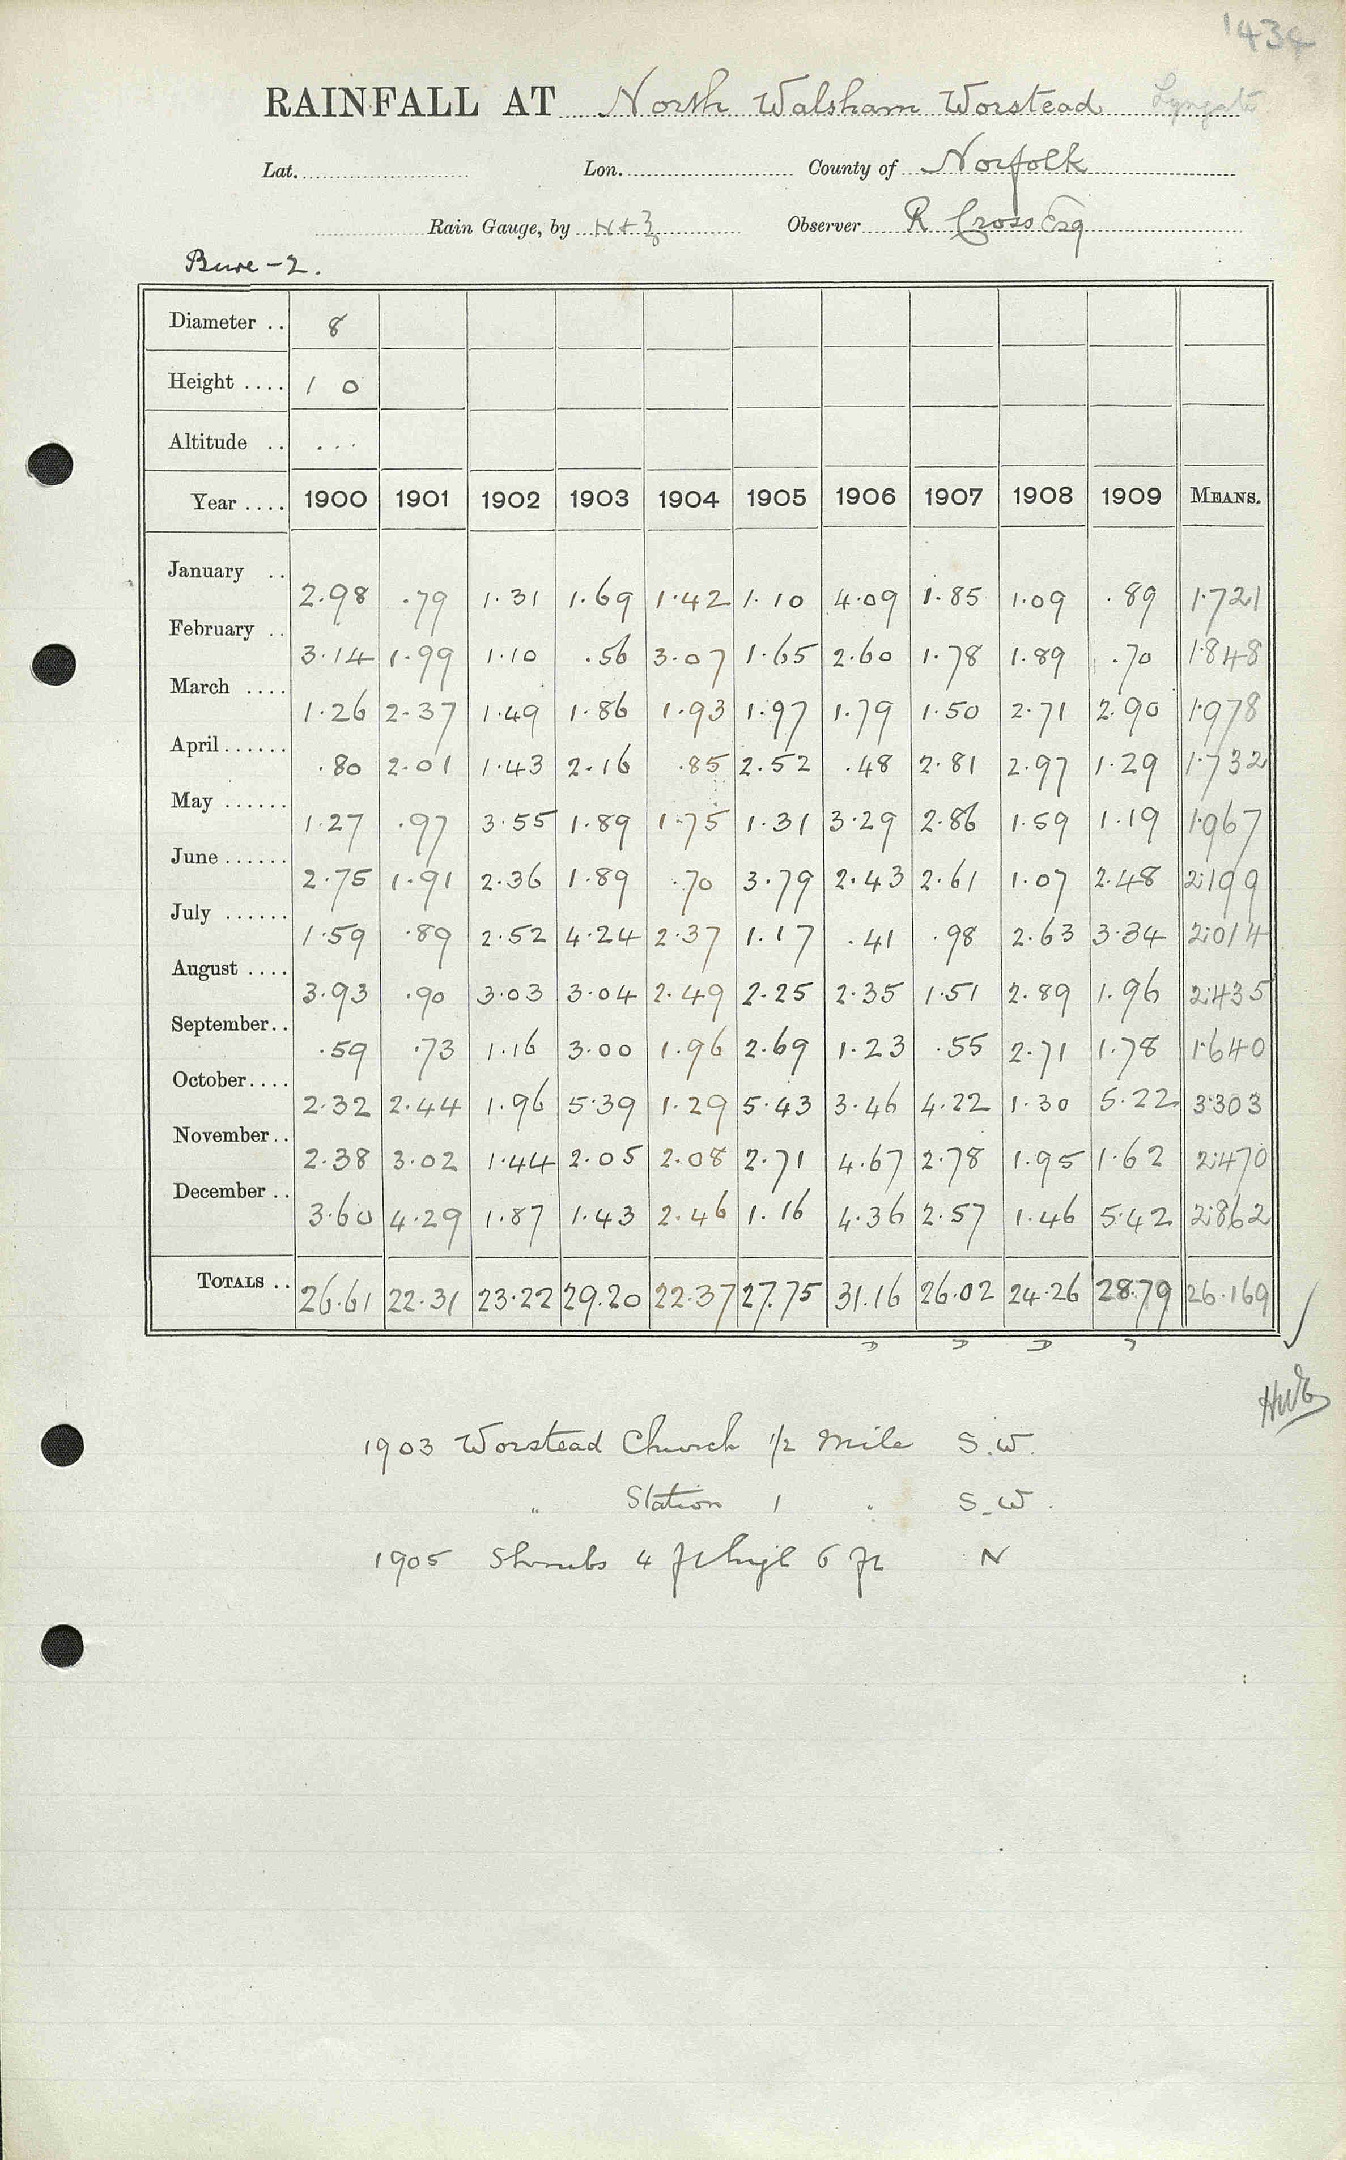 1434
RAINFALL AT North Walsham Worstead Lyngate
Lat. Lon. County of Norfolk
Rain Gauge, by N & Z Observer R Cross Esq
Bure - 2.
Diameter .. 8
Height .... 1 0
Altitude .. ...
Year .... 1900 1901 1902 1903 1904 1905 1906 1907 1908 1909 MEANS.
January .. 2.98 .79 1.31 1.69 1.42 1.10 4.09 1.85 1.09 .89 1.721
February .. 3.14 1.99 1.10 .56 3.07 1.65 2.60 1.78 1.89 .70 1.848
March .... 1.26 2.37 1.49 1.86 1.93 1.97 1.79 1.50 2.71 2.90 1.978
April ...... .80 2.01 1.43 2.16 .85 2.52 .48 2.81 2.97 1.29 1.732
May ...... 1.27 .97 3.55 1.89 1.75 1.31 3.29 2.86 1.59 1.19 1.967
June ...... 2.75 1.91 2.36 1.89 .70 3.79 2.43 2.61 1.07 2.48 2.199
July ...... 1.59 .89 2.52 4.24 2.37 1.17 .41 .98 2.63 3.34 2.014
August .... 3.93 .90 3.03 3.04 2.49 2.25 2.35 1.51 2.89 1.96 2.435
September.. .59 .73 1.16 3.00 1.96 2.69 1.23 .55 2.71 1.78 1.640
October.... 2.32 2.44 1.96 5.39 1.29 5.43 3.46 4.22 1.30 5.22 3.303
November.. 2.38 3.02 1.44 2.05 2.08 2.71 4.67 2.78 1.95 1.62 2.470
December .. 3.60 4.29 1.87 1.43 2.46 1.16 4.36 2.57 1.46 5.42 2.862
TOTALS .. 26.61 22.31 23.22 29.20 22.37 27.75 31.16 26.02 24.26 28.79 26.169
1903 Worstead Church 1/2 Mile S.W.
" Station 1 " S.W.
1905 Shrubs 4 ft high 6 ft N